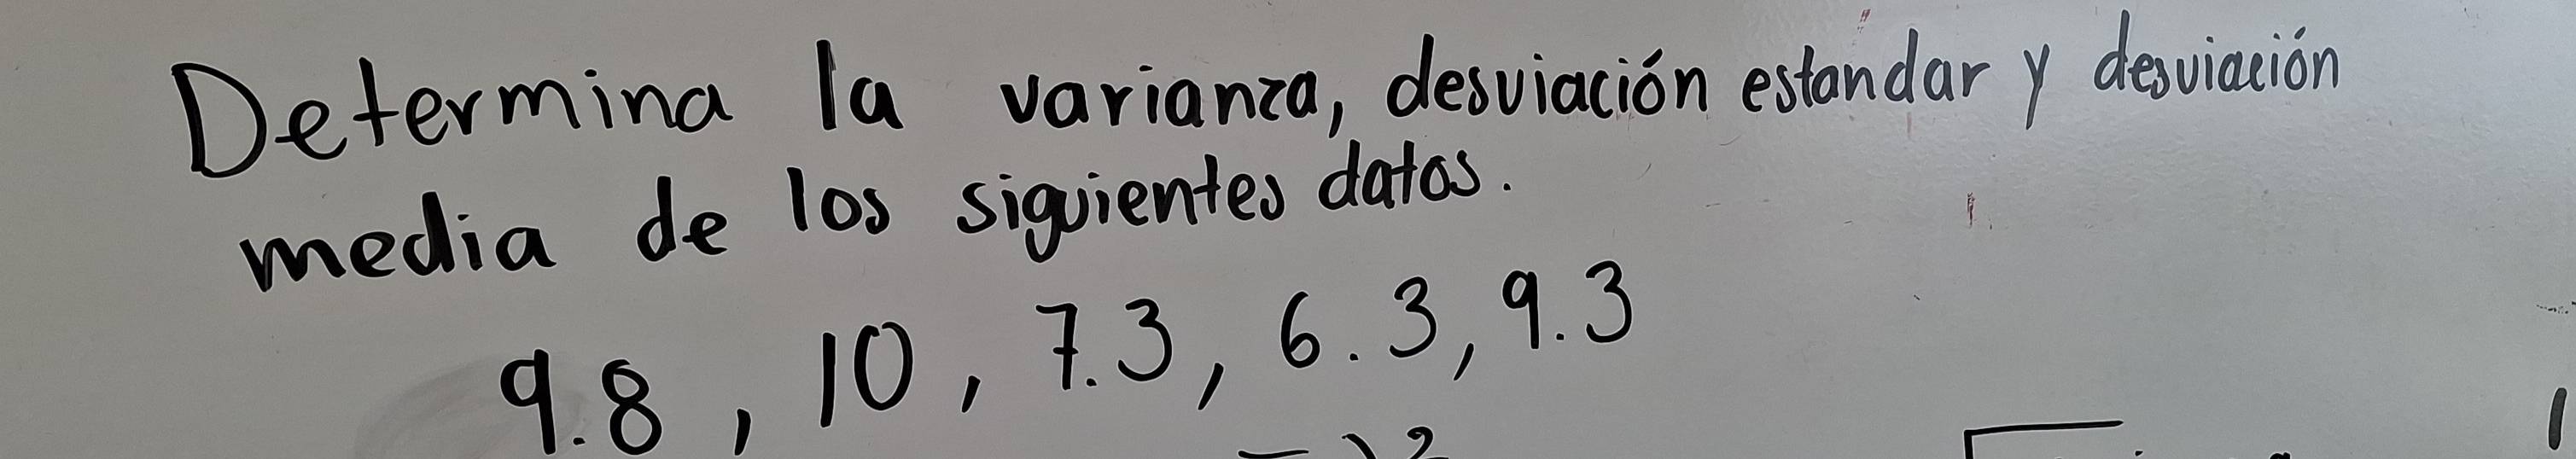 Determina la varianza, desviación estandar y desviación
media de los siguientes datos.
9.8, 10, 7.3, 6.3, 9.3